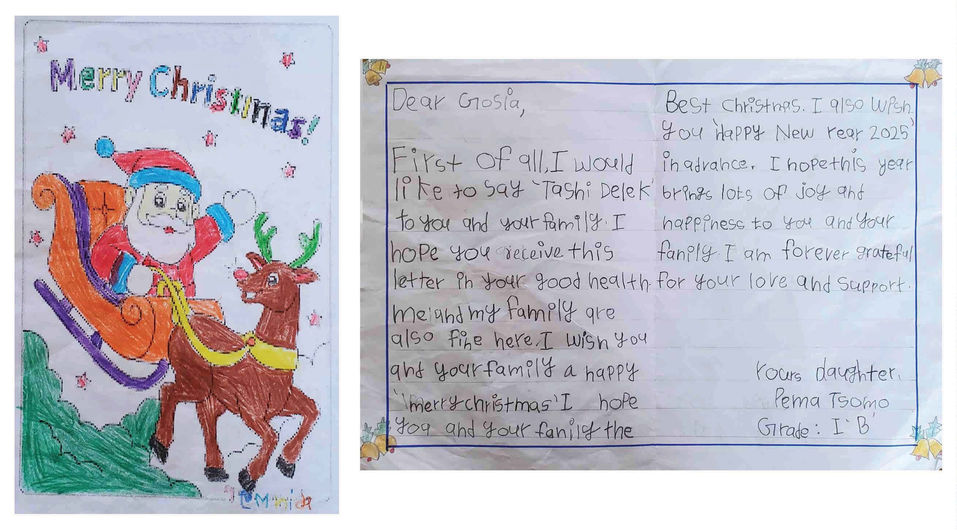 Merry Christmas!
Dear Gosia,
First of all, I would
like to say 'Tashi Delek'
to you and your family. I
hope you receive this
letter in your good health.
me and my family are
also fine here. I wish you
and your family a happy
'merry christmas' I hope
you and your fanily the
Best christmas. I also wish
you 'happy New year 2025'
in advance. I hope this year
brings lots of joy and
happiness to you and your
fanily I am forever grateful
for your love and support.
Yours daughter.
Pema Tsomo
Grade: I 'B'